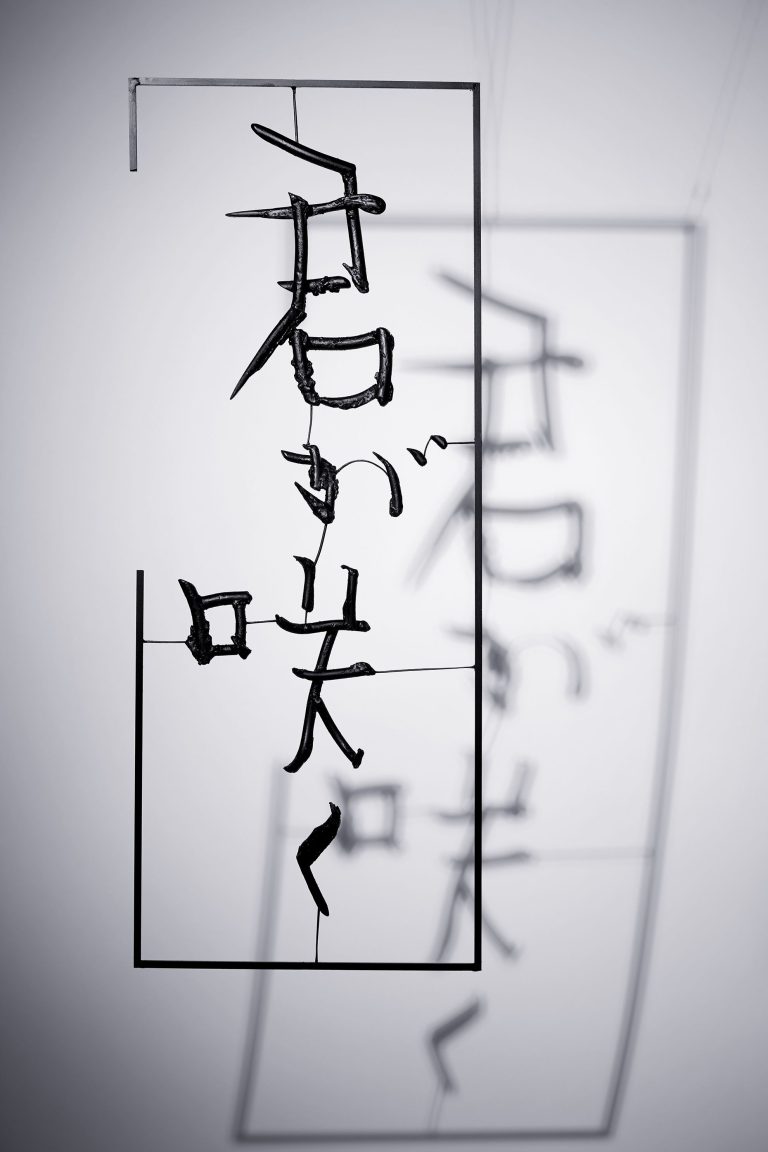 君が咲く